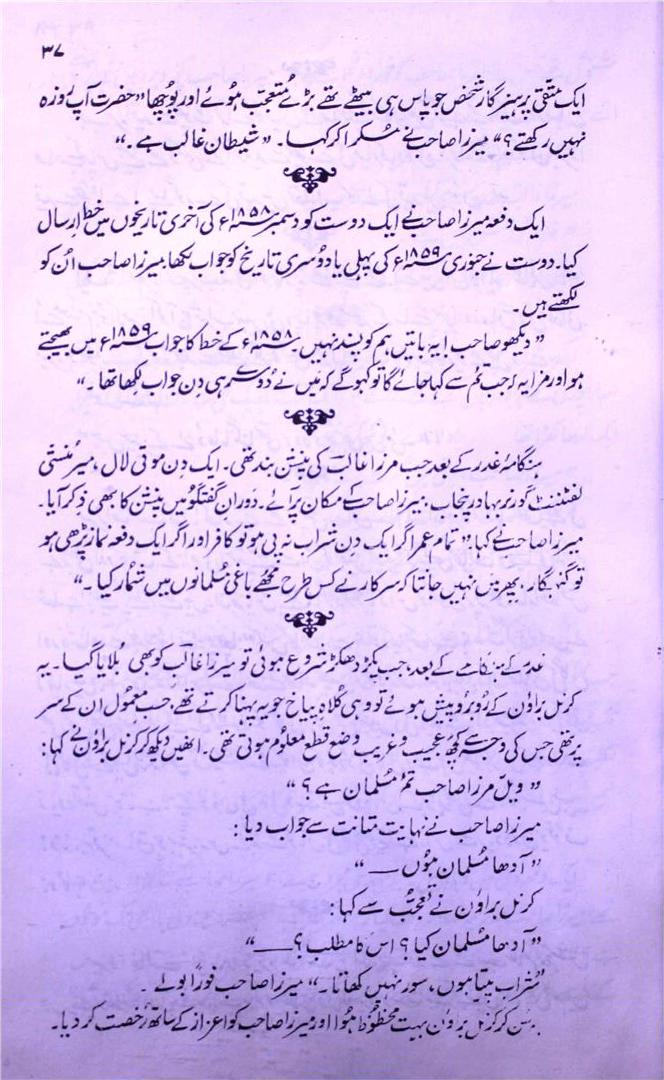 ۳۷
ایک متقی پرہیزگار شخص جو پاس ہی بیٹھے تھے بڑے متعجّب ہوئے اور پُوچھا ”حضرت آپ روزہ
نہیں رکھتے؟“ میرزا صاحب نے مُسکرا کر کہا۔ ”شیطان غالب ہے۔“
ایک دفعہ میرزا صاحب نے ایک دوست کو دسمبر ۱۸۵۸ء کی آخری تاریخوں میں خط ارسال
کیا۔ دوست نے جنوری ۱۸۵۹ء کی پہلی یا دُوسری تاریخ کو جواب لکھا، میرزا صاحب اُن کو
لکھتے ہیں۔
”دیکھو صاحب! یہ باتیں ہم کو پسند نہیں ۱۸۵۸ء کے خط کا جواب ۱۸۵۹ء میں بھیجتے
ہو اور مزا یہ کہ جب تم سے کہا جائے گا تو کہو گے کہ مَیں نے دُوسرے ہی دن جواب لکھا تھا۔“
ہنگامۂ غدر کے بعد جب مرزا غالبؔ کی پنشن بند تھی۔ ایک دِن موتی لال، میر مُنشی
لفٹننٹ گورنر بہادر پنجاب، میرزا صاحب کے مکان پر آئے۔ دَوران گفتگو میں پنشن کا بھی ذِکر آیا۔
میرزا صاحب نے کہا، ”تمام عمر اگر ایک دِن شراب نہ پی ہو تو کافر اور اگر ایک دفعہ نماز پڑھی ہو
تو گنہگار، پھر میں نہیں جانتا کہ سرکار نے کس طرح مُجھے باغی مُسلمانوں میں شُمار کیا۔“
غدر کے ہنگامے کے بعد، جب پکڑ دھکڑ شروع ہوئی تو میرزا غالبؔ کو بھی بُلایا گیا۔ یہ
کرنل براؤن کے رُوبرو پیش ہوئے تو وہی کُلاہِ پپاخ جو یہ پہنا کرتے تھے، حسبِ معمُول ان کے سر
پر تھی جس کی وجہ سے کچھ عجیب و غریب وضع قطع معلُوم ہوتی تھی۔ انھیں دیکھ کر کرنل براؤن نے کہا:
”ویل مرزا صاحب تم مُسلمان ہے؟“
میرزا صاحب نے نہایت متانت سے جواب دیا:
”آدھا مُسلمان ہُوں ــــ“
کرنل براؤن نے تعجّب سے کہا:
”آدھا مُسلمان کیا؟ اس کا مطلب؟ ــــ“
”شراب پیتا ہوں، سور نہیں کھاتا۔“ میرزا صاحب فوراً بولے۔
یہ سُن کر کرنل براؤن بہت محظُوظ ہُوا اور میرزا صاحب کو اعزاز کے ساتھ رُخصت کر دیا۔